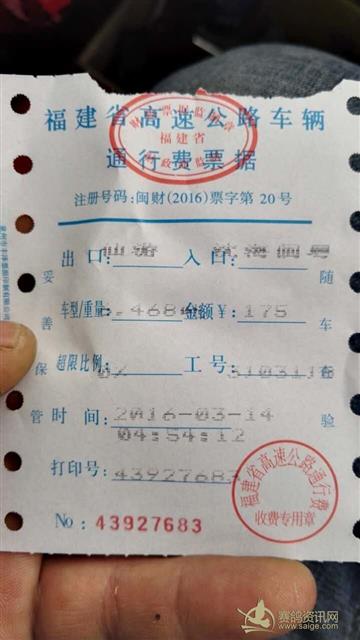 福建省高速公路车辆
通行费票据
财政票据监制章
福建省
注册号码:闽财(2016)票字第 20 号
出口: 仙游 入口:
车型/重量: 金额¥: 175
超限比例: 0% 工号:
时间: 2016-03-14
04:54:12
打印号: 43927683
No: 43927683
妥善保管
随车
验
福建省高速公路通行费
收费专用章
赛鸽资讯网
www.saige.com